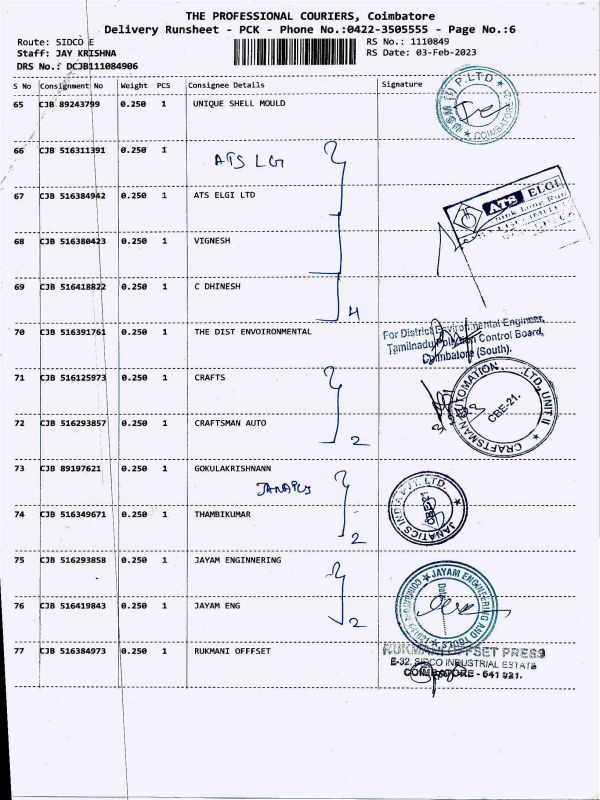 THE PROFESSIONAL COURIERS, Coimbatore
Delivery Runsheet - PCK - Phone No.:0422-3505555 - Page No.:6
Route: SIDCO E RS No.: 1110849
Staff: JAY KRISHNA RS Date: 03-Feb-2023
DRS No.: DCJB111084906
S No Consignment No Weight PCS Consignee Details Signature
65 CJB 89243799 0.250 1 UNIQUE SHELL MOULD
P.LTD COIMBATORE
66 CJB 516311391 0.250 1
ATS LG
67 CJB 516384942 0.250 1 ATS ELGI LTD
ATS ELGI
68 CJB 516380423 0.250 1 VIGNESH
69 CJB 516418822 0.250 1 C DHINESH
4
70 CJB 516391761 0.250 1 THE DIST ENVOIRONMENTAL
For District Environmental Engineer,
Tamilnadu Pollution Control Board,
Coimbatore (South).
71 CJB 516125973 0.250 1 CRAFTS
CRAFTSMAN AUTOMATION LTD., UNIT II
CBE-21.
72 CJB 516293857 0.250 1 CRAFTSMAN AUTO
2
73 CJB 89197621 0.250 1 GOKULAKRISHNANN
JANATICS
JANATICS INDIA PVT. LTD.
CBE-21
74 CJB 516349671 0.250 1 THAMBIKUMAR
2
75 CJB 516293858 0.250 1 JAYAM ENGINNERING
JAYAM ENGINEERING AND TOOLS
76 CJB 516419843 0.250 1 JAYAM ENG
2
77 CJB 516384973 0.250 1 RUKMANI OFFFSET
RUKMANI OFFSET PRESS
E-32, SIDCO INDUSTRIAL ESTATE
COIMBATORE - 641 021.